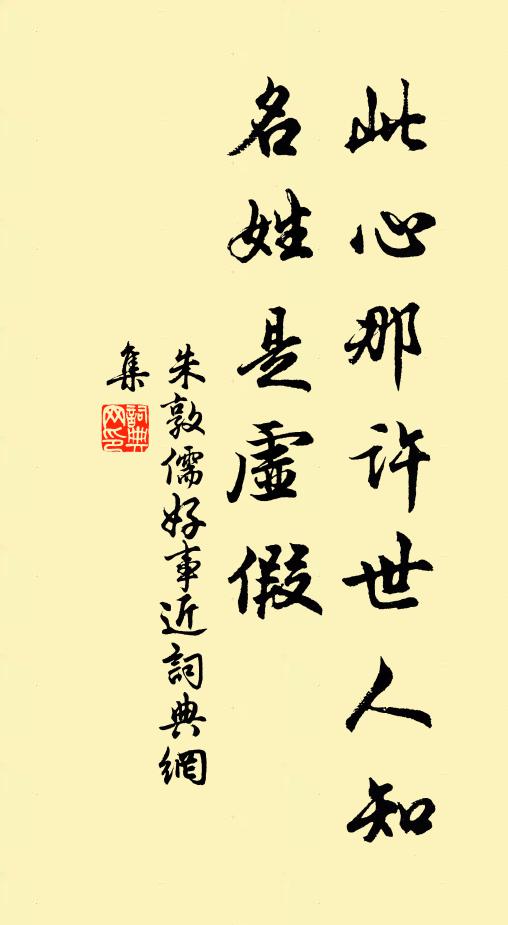 此心那许世人知
名姓是虛假
朱敦儒好事近詞典網
集
詞典
网印